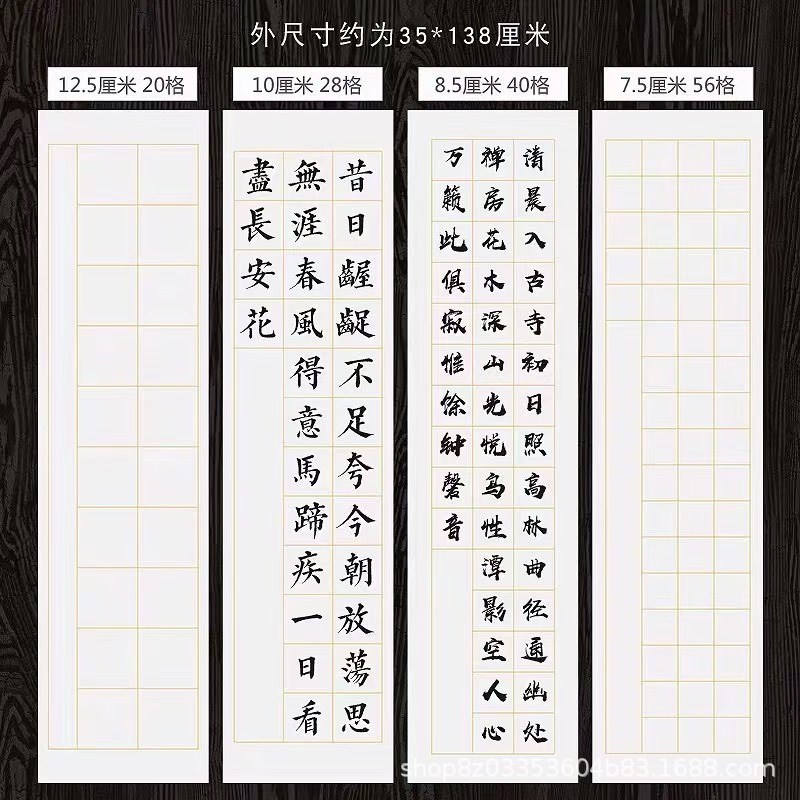 外尺寸约为35*138厘米
12.5厘米 20格
10厘米 28格
8.5厘米 40格
7.5厘米 56格
昔日齷齪不足夸今朝放蕩思
無涯春風得意馬蹄疾一日看
盡長安花
清晨入古寺初日照高林曲径通幽处
禅房花木深山光悦鸟性潭影空人心
万籁此俱寂惟馀钟磬音
shop8z03353604b83.1688.com